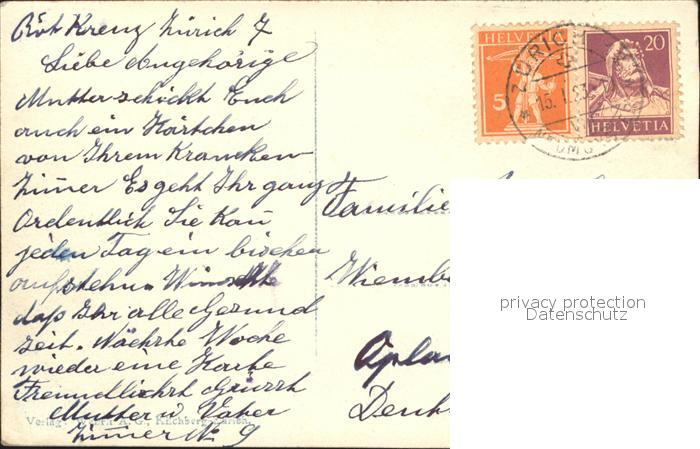 Rot Krenz Zürich 7
Liebe Angehörige
Mutter schickt Euch
auch ein Kärtchen
von Ihrem Krancken
Zimer Es geht Ihr ganz
Ordentlich Sie Kan
jeden Tag ein bischen
aufstehn. Wünschte
daß Ihr alle Gesund
seit. Nächste Woche
wieder eine Karte
Freundlichst Grüsst
Mutter u Vater
Zimer No 9
Verlag: A. G., Kilchberg-Zürich
HELVETIA
5
20
HELVETIA
ZÜRICH
15. I. 23
Familie
Wiemb
Denk
privacy protection
Datenschutz